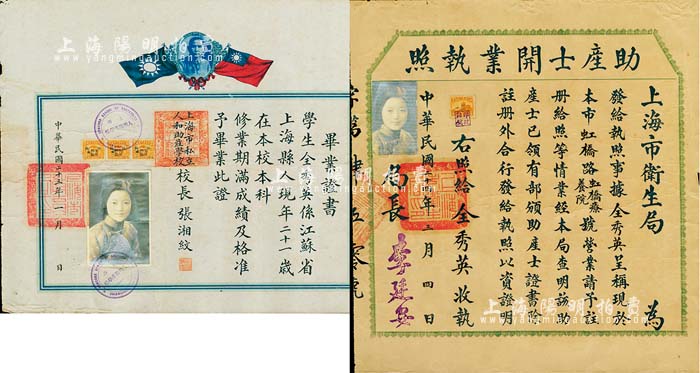 畢業證書
學生全秀英係江蘇省
上海縣人現年二十一歲
在本校本科
修業期滿成績及格准
予畢業此證
上海市私立
人和助產學校
校長 張湘紋
中華民國二十三年一月 日
助產士開業執照
上海市衛生局 為
發給執照事據全秀英呈稱現於
本市虹橋路虹橋療養院 號營業請予註
冊給照等情業經本局查明該助
產士已領有部頒助產士證書除
註冊外合行發給執照以資證明
右照給全秀英收執
中華民國 年 月四日
局長 李廷安
上海陽明拍賣
www.yangmingauction.com
上海陽明拍賣
www.yangmingauction.com